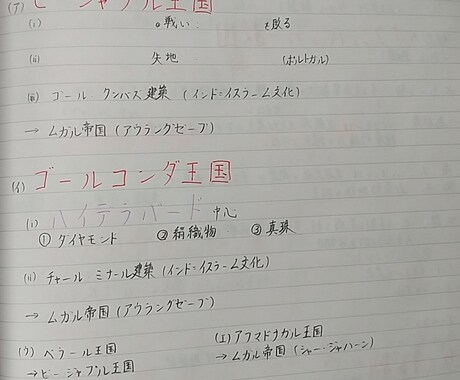 (ア) ビージャプル王国
(i) の戦い を破る
(ii) 失地 (ポルトガル)
(iii) ゴール グンバズ建築 (インド=イスラーム文化)
→ ムガル帝国 (アウラングゼーブ)
(イ) ゴールコンダ王国
(i) ハイデラバード 中心
① ダイヤモンド ② 絹織物 ③ 真珠
(ii) チャール ミナール建築 (インド=イスラーム文化)
→ ムガル帝国 (アウラングゼーブ)
(ウ) ベラール王国
→ビージャプル王国
(エ) アフマドナガル王国
→ムガル帝国 (シャー・ジャハーン)